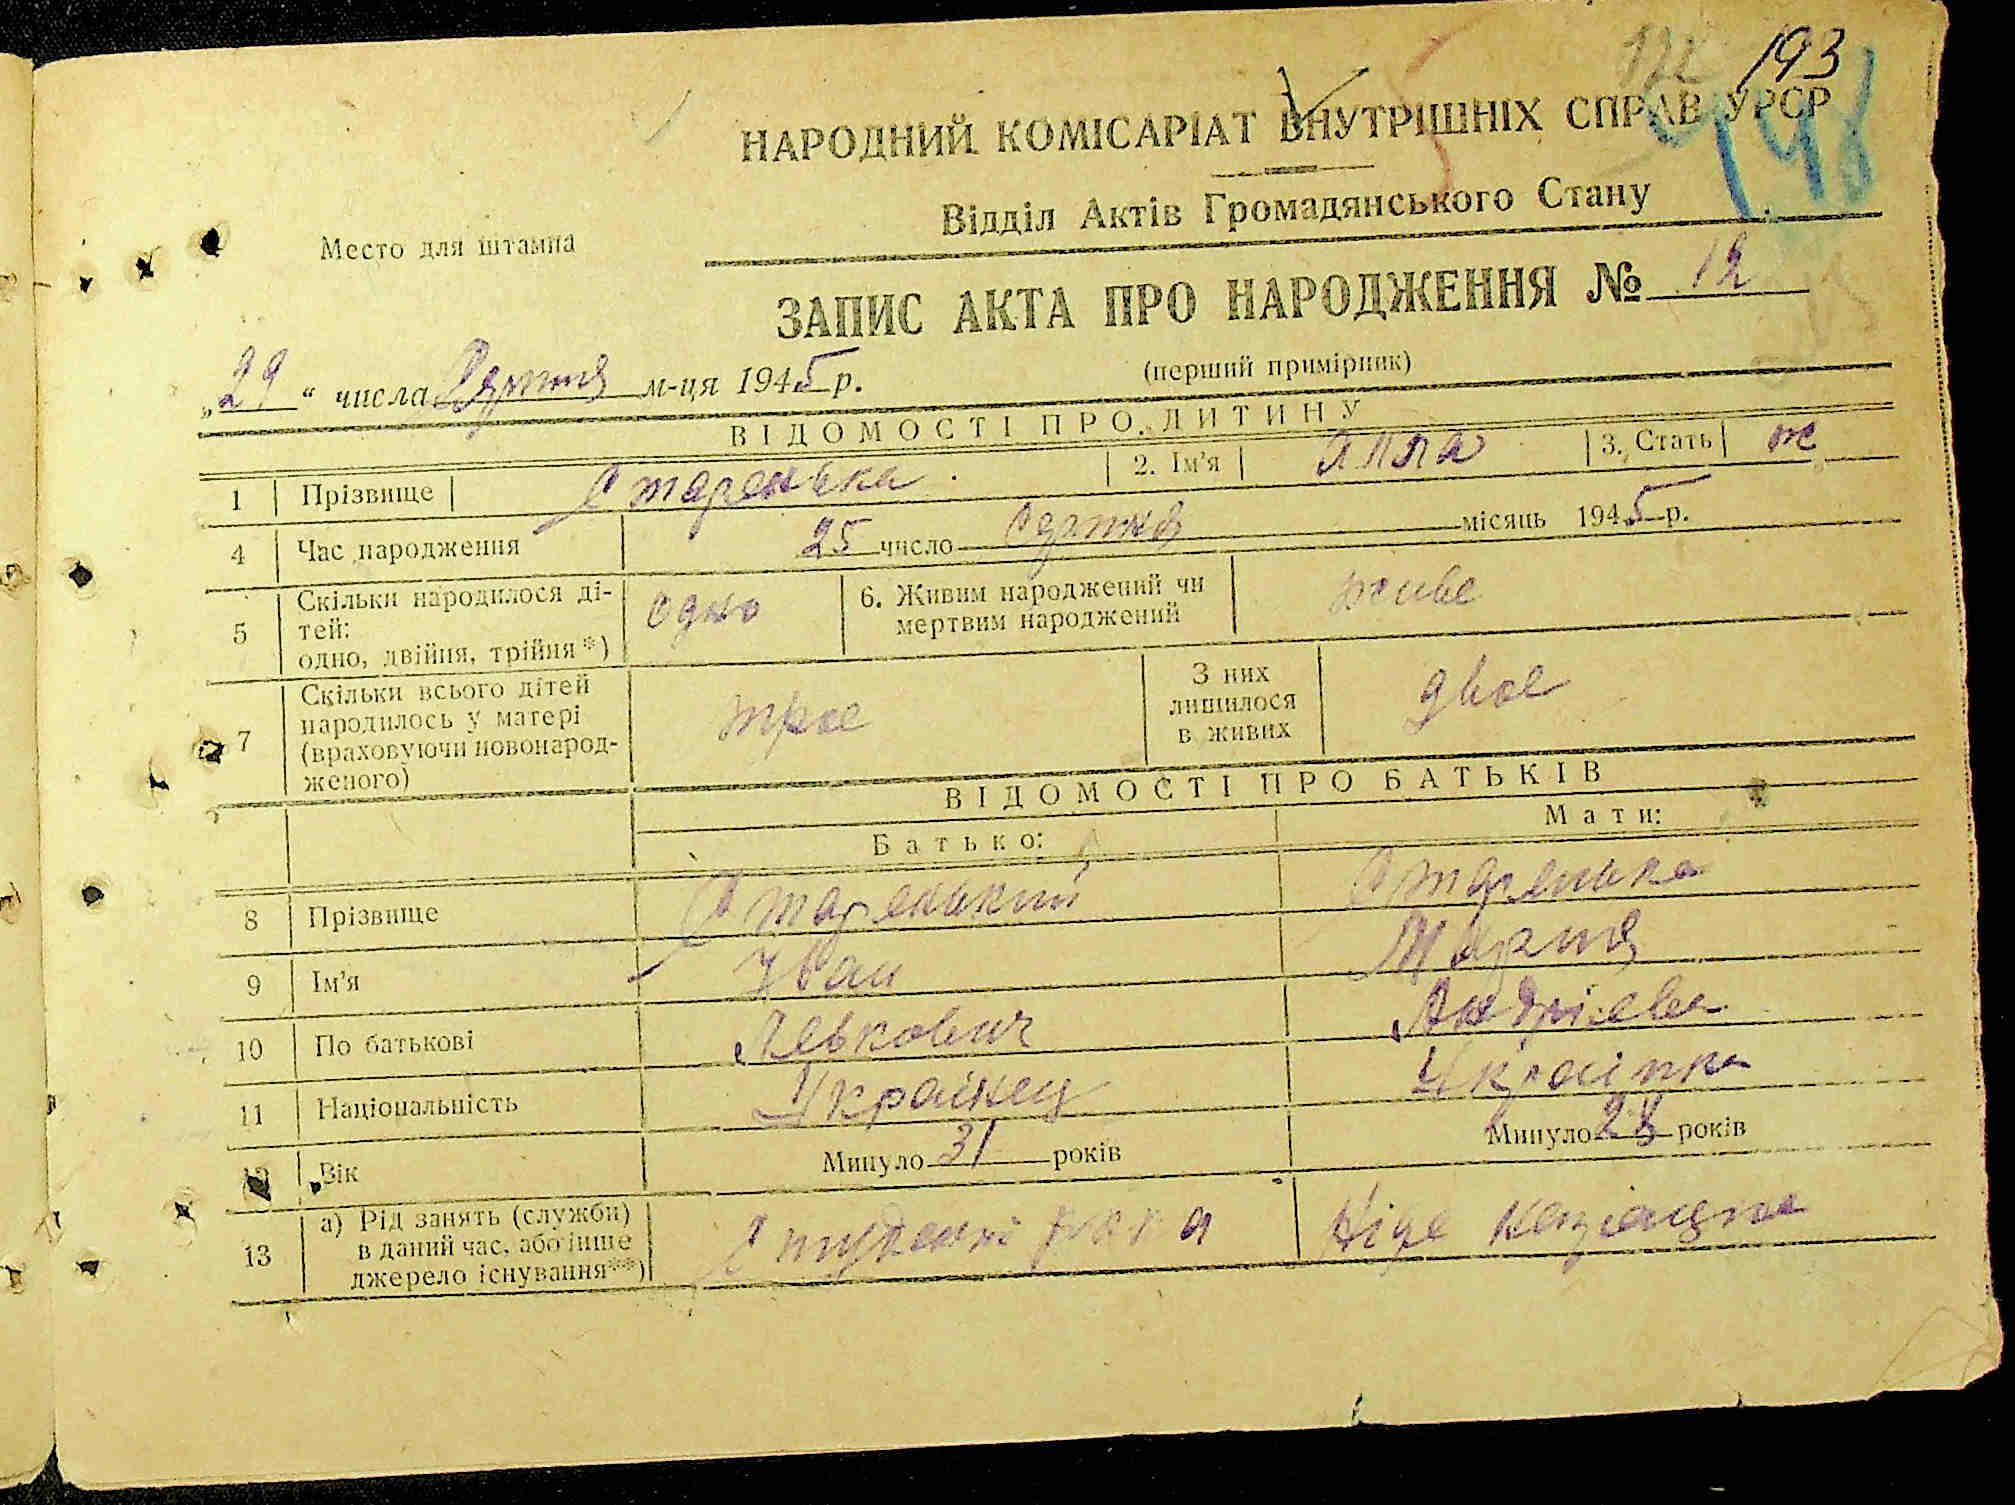 193
НАРОДНИЙ КОМІСАРІАТ ВНУТРІШНІХ СПРАВ УРСР
Відділ Актів Громадянського Стану
Место для штампа
ЗАПИС АКТА ПРО НАРОДЖЕННЯ № 12
(перший примірник)
„29“ числа Серпня м-ця 1945 р.
ВІДОМОСТІ ПРО ДИТИНУ
1 Прізвище Старенька 2. Ім'я Алла 3. Стать ж
4 Час народження 25 число Серпня місяць 1945 р.
5 Скільки народилося ді-
тей:
одно, двійня, трійня*) одно 6. Живим народжений чи
мертвим народжений живе
7 Скільки всього дітей
народилось у матері
(враховуючи новонарод-
женого) троє З них
лишилося
в живих двоє
ВІДОМОСТІ ПРО БАТЬКІВ
Батько: Мати:
8 Прізвище Старенький Старенька
9 Ім'я Іван Марія
10 По батькові Левкович Андріевна
11 Національність Українец Українка
12 Вік Минуло 31 років Минуло 28 років
13 а) Рід занять (служби)
в даний час, або інше
джерело існування**) Ніде